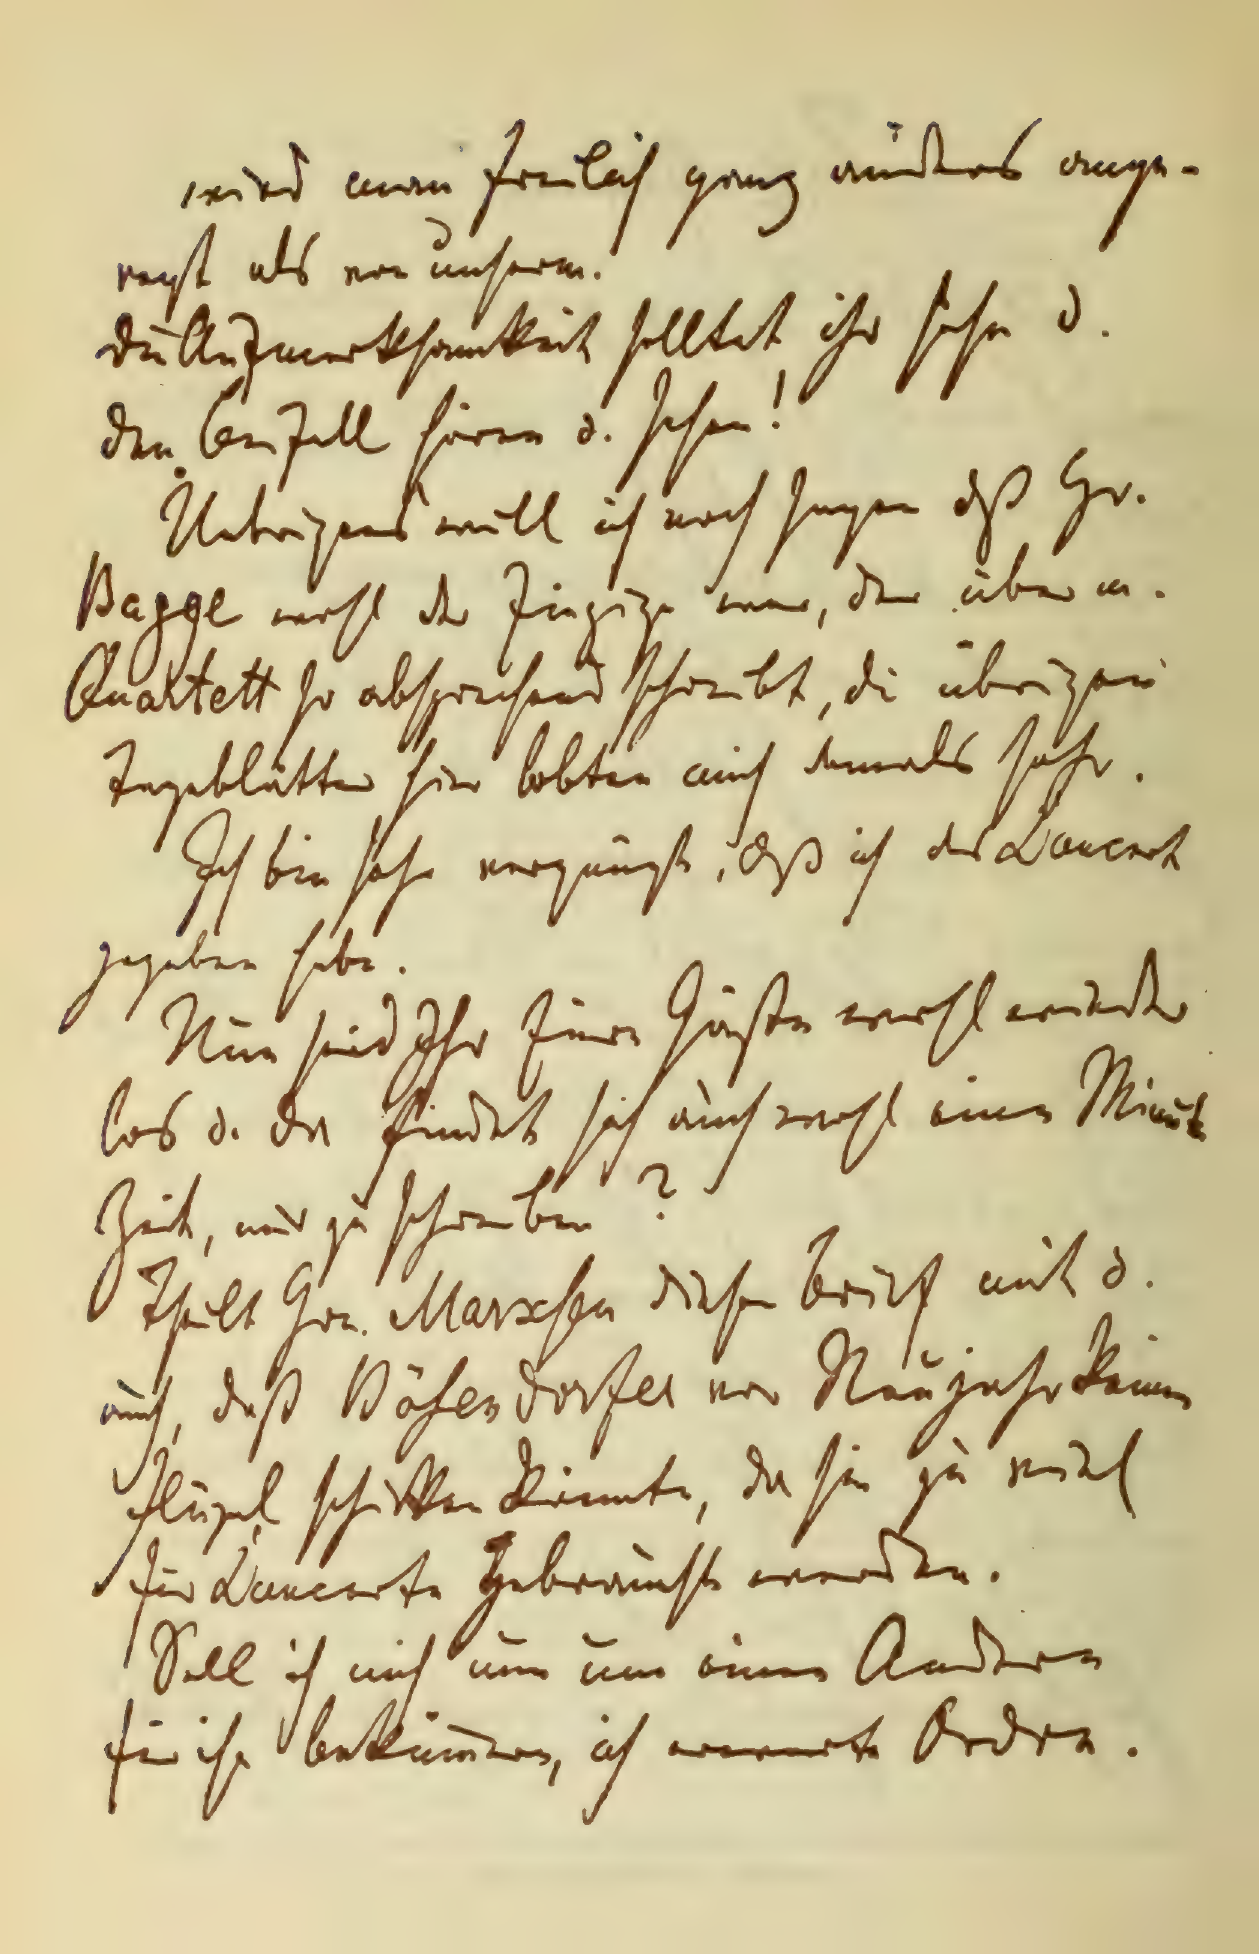 wird man freilich ganz anders ange-
regt als von unserm.
Die Aufmerksamkeit solltet ihr sehn u.
den Beifall hören u. sehen!
Uebrigens will ich noch sagen dß Hr.
Bagge wohl der Einzige war, der über m.
Quartett so absprechend schreibt, die übrigen
Tageblätter hier lobten auch damals sehr.
Ich bin sehr vergnügt, dß ich das Concert
gegeben habe.
Nun seid Ihr Eure Gäste wohl wieder
los u. da findet sich auch wohl eine Minute
Zeit, mir zu schreiben?
Theilt Hrn. Marxsen diesen Brief mit u.
auch, daß Bösendorfer vor Neujahr keinen
Flügel schicken könnte, da sie zu viel
für Concerte gebraucht werden.
Soll ich mich nun um einen Andern
für ihn bekümmern, ich erwarte Ordre.